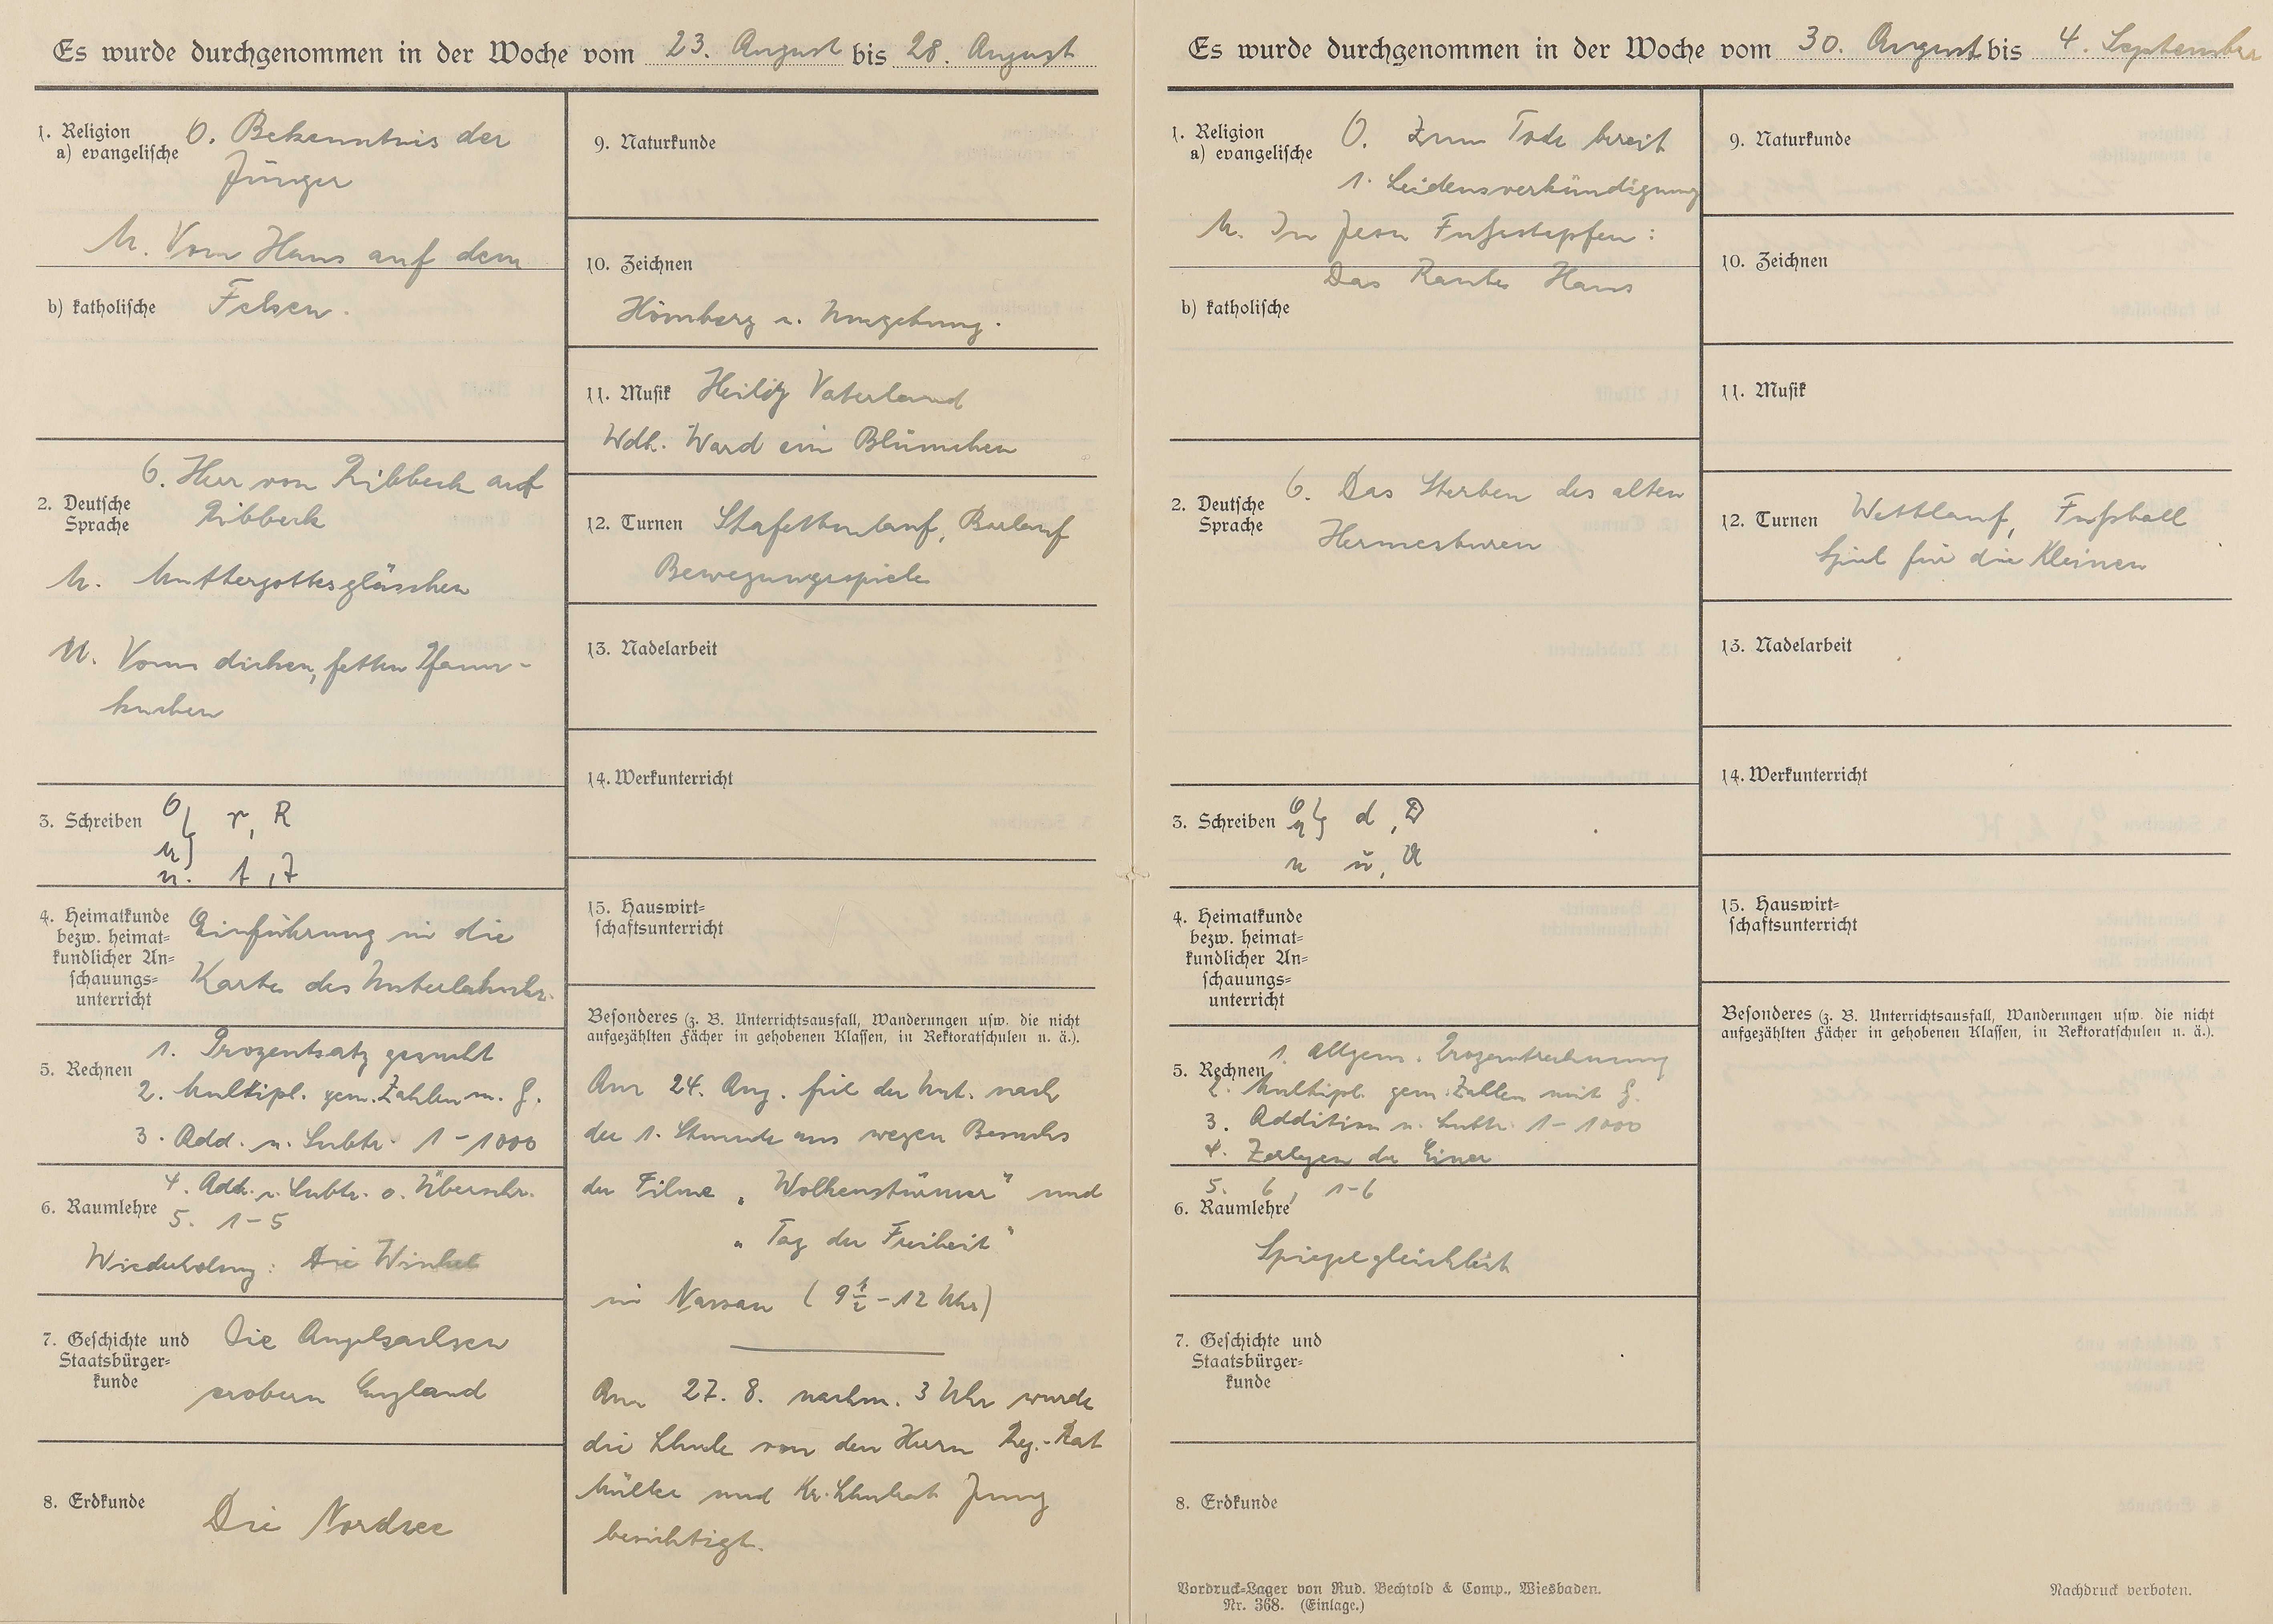 Es wurde durchgenommen in der Woche vom 23. August bis 28. August
1. Religion
a) evangelische
O. Bekenntnis der
Jünger
M. Vom Haus auf dem
b) katholische
Felsen.
2. Deutsche
Sprache
O. Herr von Ribbeck auf
Ribbeck
M. Muttergottesgläschen
U. Vom dicken, fetten Pfann-
kuchen
3. Schreiben
O
M } r, R
U.
4. Heimatkunde
bezw. heimat=
kundlicher An=
schauungs=
unterricht
Einführung in die
Karte des Unterlahnkr.
5. Rechnen
1. Prozentsatz gesucht
2. Multipl. gem. Zahlen m. g.
3. Add. u. Subtr. 1-1000
4. Add. u. Subtr. o. Überschr.
6. Raumlehre
5. 1-5
Wiederholung: Die Winkel
7. Geschichte und
Staatsbürger=
kunde
Die Angelsachsen
erobern England
8. Erdkunde
Die Nordsee
9. Naturkunde
10. Zeichnen
Hömberg u. Umgebung.
11. Musik Heilig Vaterland
Wdh. Ward ein Blümchen
12. Turnen Stafettenlauf, Barlauf
Bewegungsspiele
13. Nadelarbeit
14. Werkunterricht
15. Hauswirt=
schaftsunterricht
Besonderes (z. B. Unterrichtsausfall, Wanderungen usw. die nicht
aufgezählten Fächer in gehobenen Klassen, in Rektoratschulen u. ä.).
Am 24. Aug. fiel der Unt. nach
der 1. Stunde aus wegen Besuchs
der Filme „Wolkenstürmer" und
„Tag der Freiheit"
in Nassau (9½-12 Uhr)
Am 27. 8. nachm. 3 Uhr wurde
die Schule von den Herrn Reg.-Rat
Müller und Kr. Schulrat Jung
besichtigt.
Es wurde durchgenommen in der Woche vom 30. August bis 4. September
1. Religion
a) evangelische
O. Zum Tode bereit
1. Leidensverkündigung
M. In Jesu Fußstapfen:
Das Rauhe Haus
b) katholische
2. Deutsche
Sprache
O. Das Sterben des alten
3. Schreiben
O
M } d, D
U ü,
4. Heimatkunde
bezw. heimat=
kundlicher An=
schauungs=
unterricht
5. Rechnen
1. Allgem. Prozentrechnung
2. Multipl. gem. Zahlen mit g.
3. Addition u. Subtr. 1-1000
4. Zerlegen der Einer
5. 6, 1-6
6. Raumlehre
Spiegelgleichheit
7. Geschichte und
Staatsbürger=
kunde
8. Erdkunde
9. Naturkunde
10. Zeichnen
11. Musik
12. Turnen Wettlauf, Fußball
Spiel für die Kleinen
13. Nadelarbeit
14. Werkunterricht
15. Hauswirt=
schaftsunterricht
Besonderes (z. B. Unterrichtsausfall, Wanderungen usw. die nicht
aufgezählten Fächer in gehobenen Klassen, in Rektoratschulen u. ä.).
Vordruck=Lager von Rud. Bechtold & Comp., Wiesbaden.
Nr. 368. (Einlage.)
Nachdruck verboten.